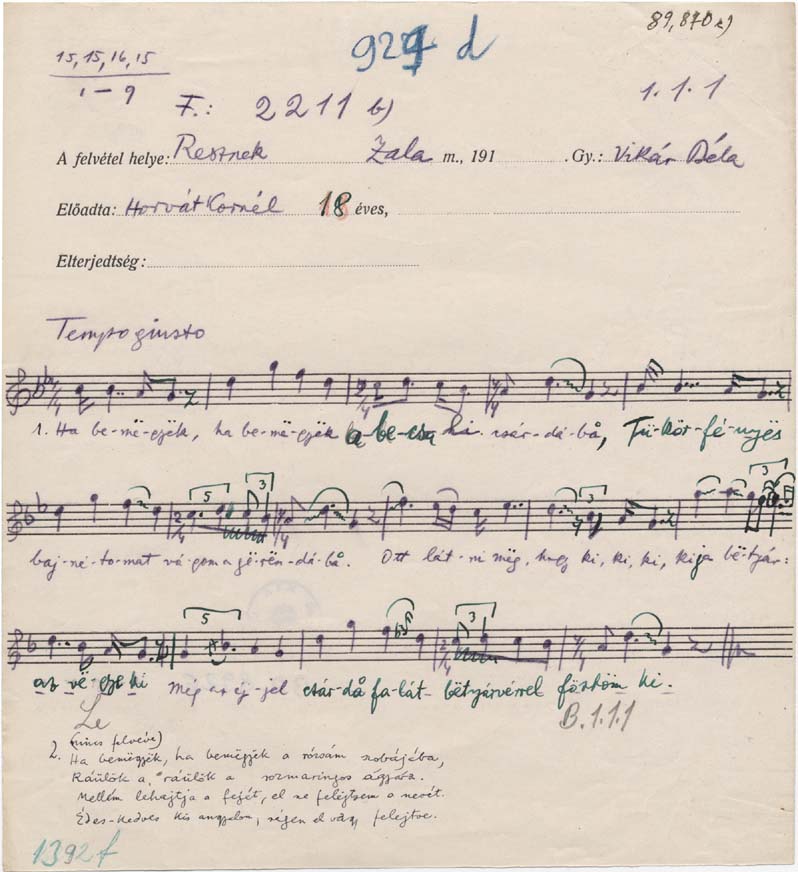 89,870 a)
15, 15, 16, 15
1-9
924 d
F.: 2211 b)
1. 1. 1
A felvétel helye: Resznek Zala m., 191 Gy.: Vikár Béla
Előadta: Horvát Kornél 18 éves,
Elterjedtség:
Tempo giusto
1. Ha be-më-gyëk, ha be-më-gyëk a be-csa li csár-dá-bå, Tü-kör-fé-nyës
baj-né-to-mat vá-gom a gë-rën-dá-bå. Ott lát-ni mëg, hogy ki, ki, ki, ki ja bëtyár:
5
3
3
3
az vé-ge ki még az éj-jel csár-då fa-lát- bëtyárvérrel föstöm ki.
5
3
Le
B.1.1.1
(nincs felvéve)
2. Ha bemëgyëk, ha bemëgyëk a rózsám szobájába,
Ráülök a, ráülök a rozmaringos ágyára.
Mellém lehajtja a fejét, el ne felejtsem a nevét.
Édes-kedves kis angyalom, régen el vagy felejtve.
1392 f